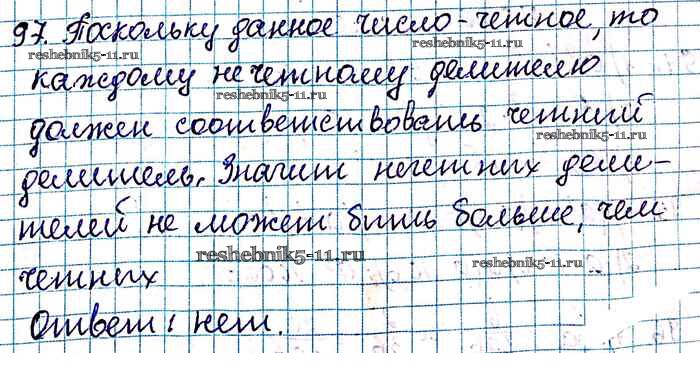 97. Поскольку данное число - четное, то
reshebnik5-11.ru reshebnik5-11.ru
каждому нечетному делителю
reshebnik5-11.ru
должен соответствовать четний
reshebnik5-11.ru
делитель. Значит нечетних дели-
телей не может бить больше, чем
reshebnik5-11.ru
reshebnik5-11.ru
четних
Ответ: нет.